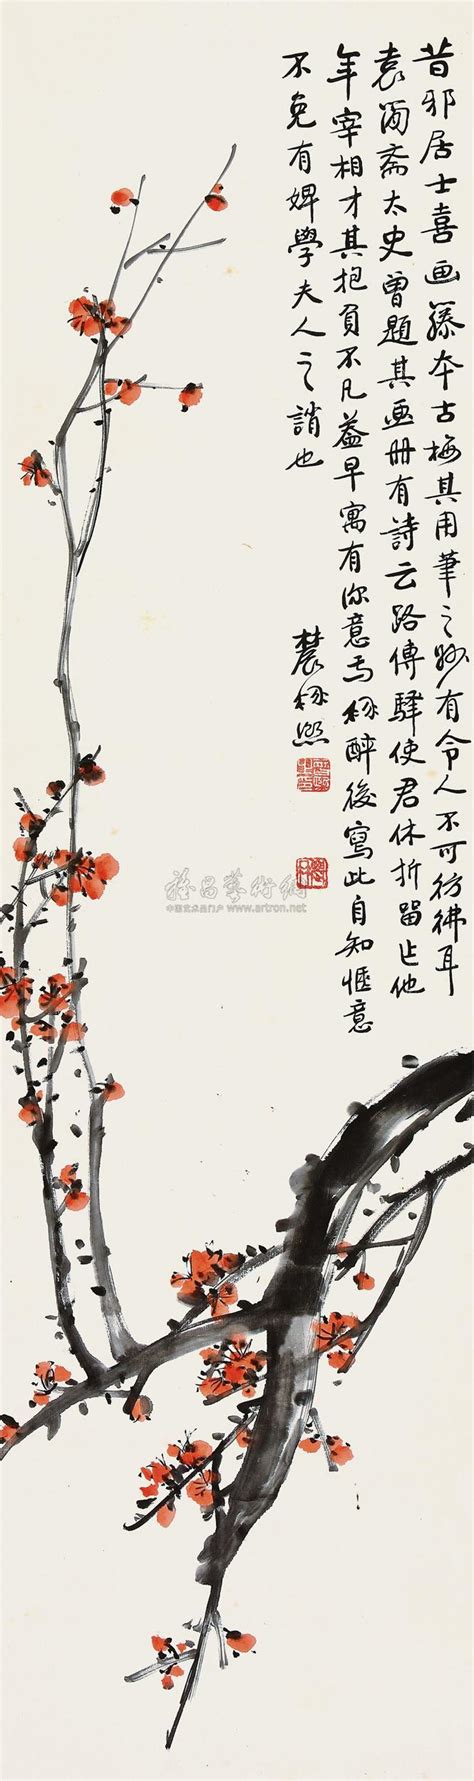 昔邪居士喜画藤本古梅其用笔之妙有令人不可彷彿耳
袁蒟斋太史曾题其画册有詩云路傅驛使君休折留作他
年宰相才其抱負不凡蓋早寓有深意焉 醉後寫此自知惬意
不免有婢學夫人之誚也
農 熙
雅昌藝術網
中国艺术品门户 www.artron.net